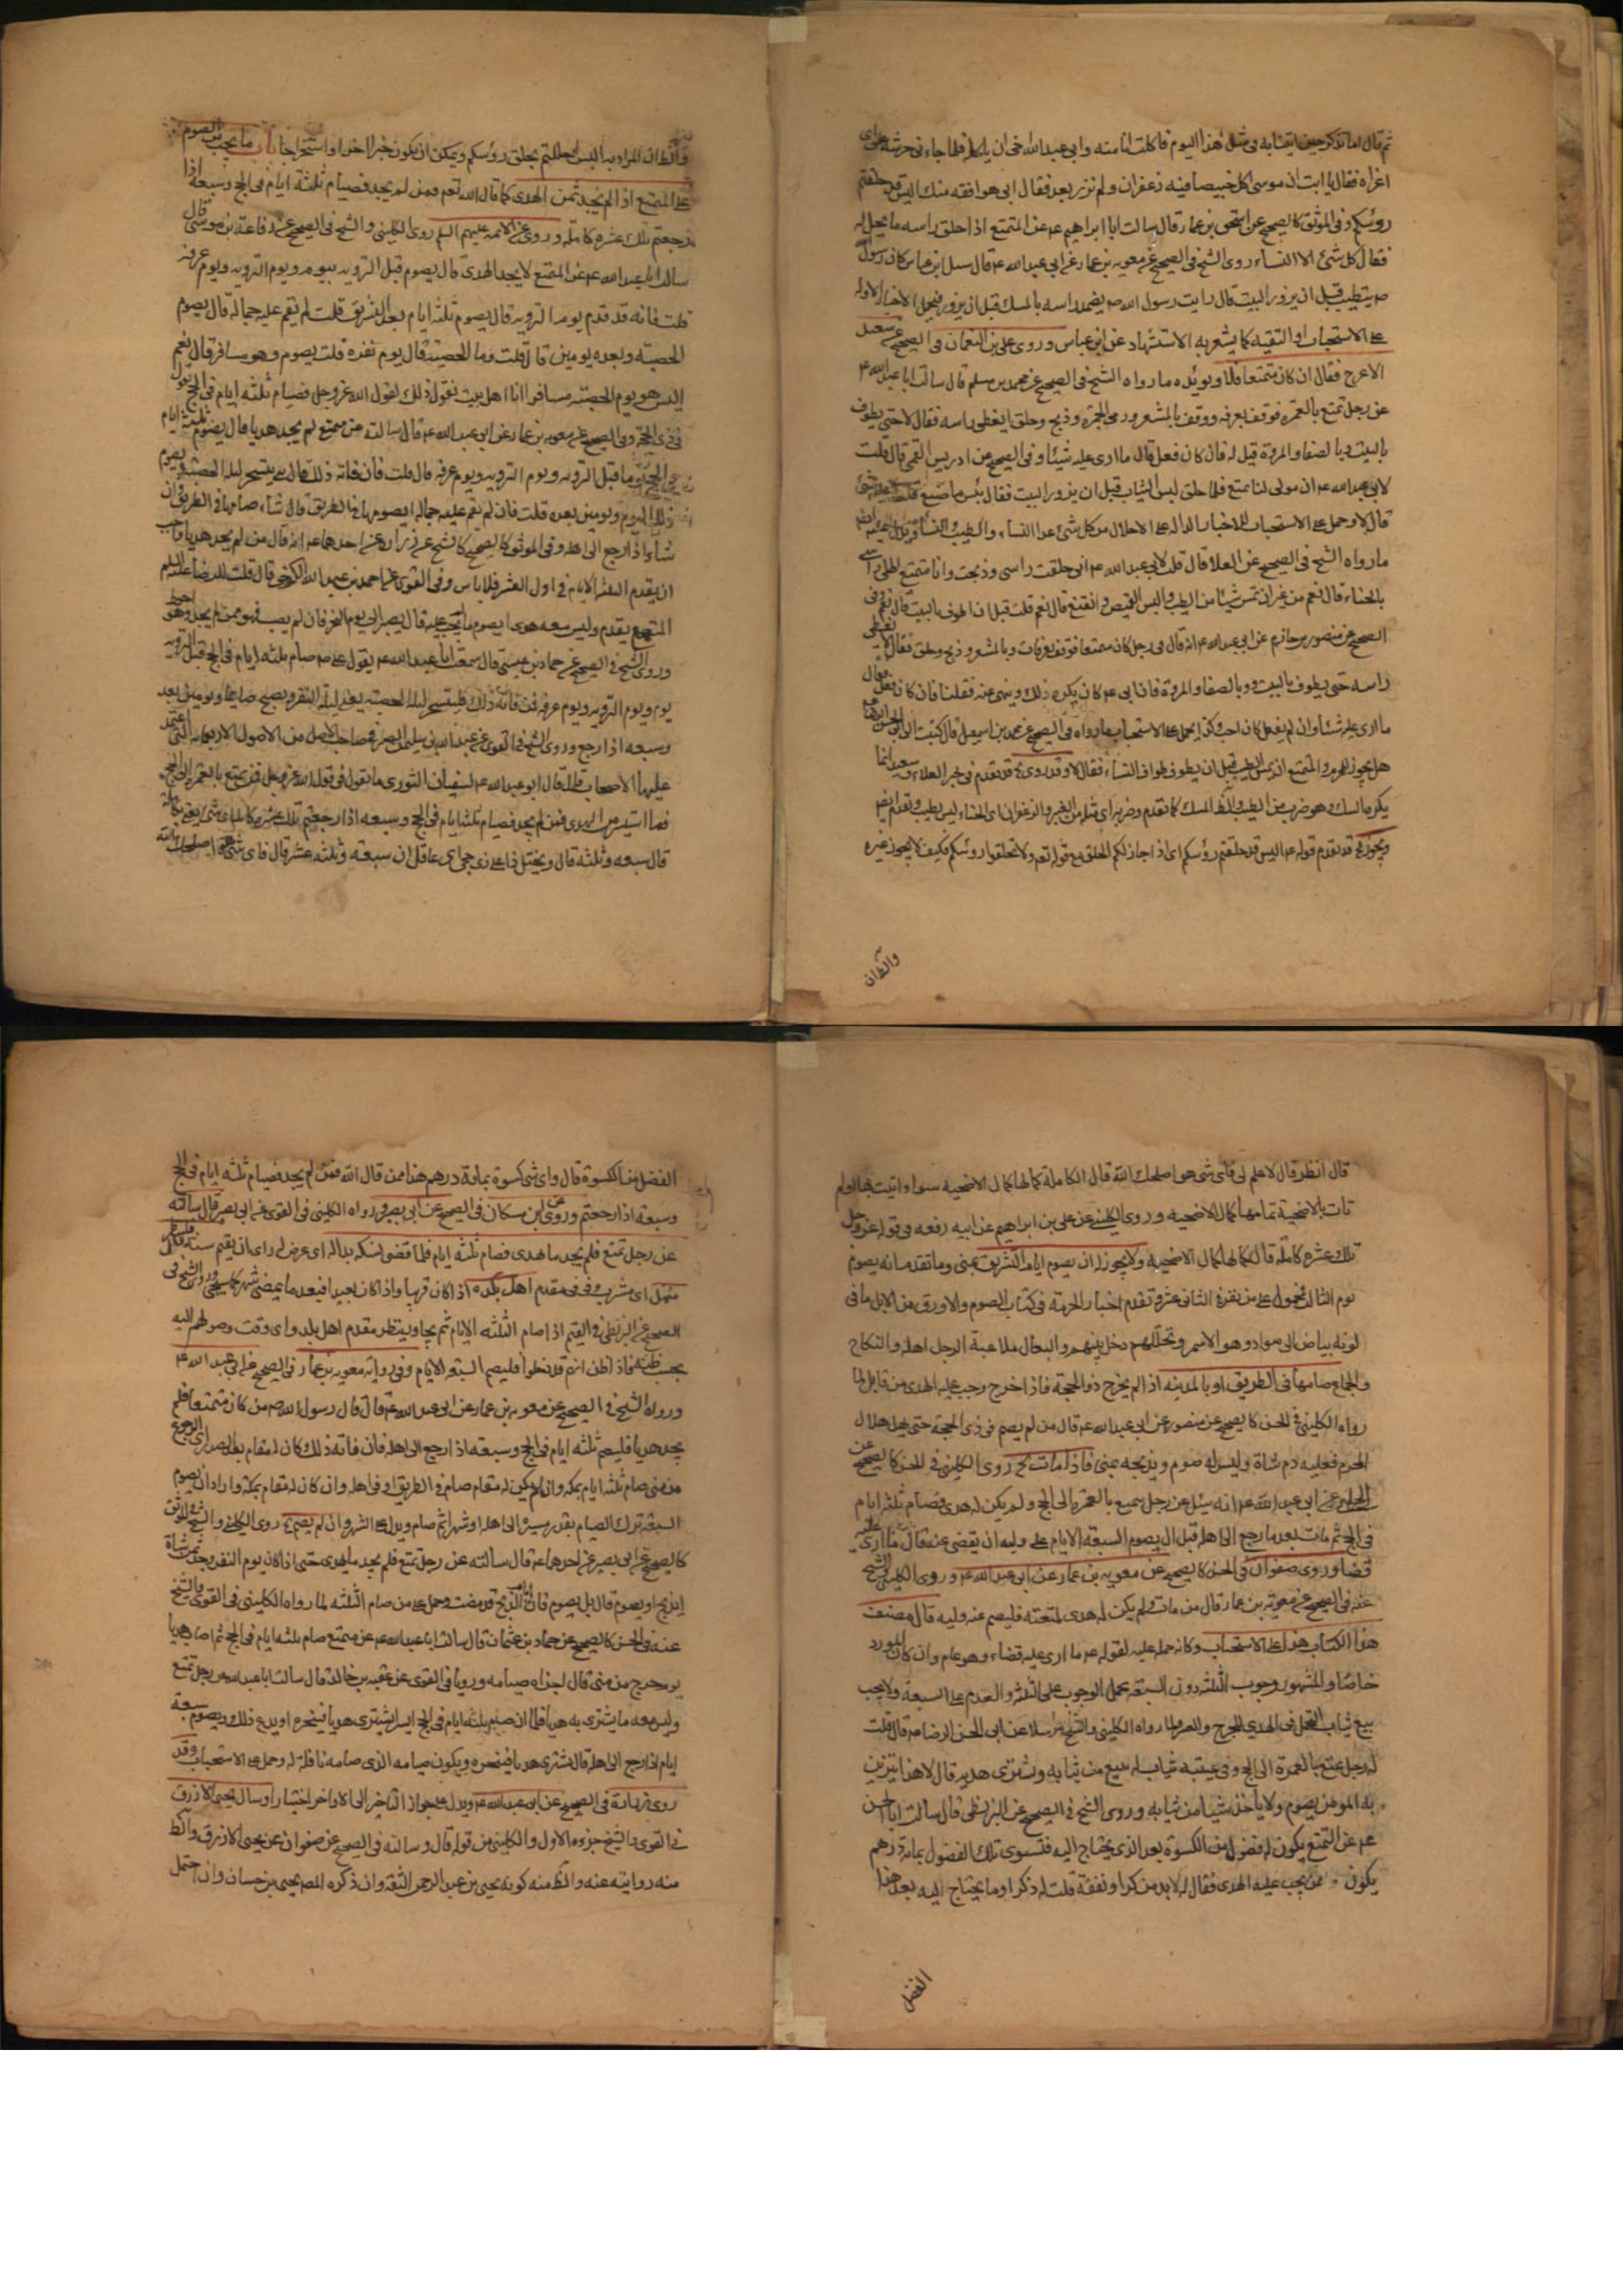 ثم قال اما تذكر حين اتيتنا به في مثل هذا اليوم فاكلت انا منه وابى عبد الله اخي ان ياكل فلما جاء ني حرشه علي
اغراه فقال يا ابت ان موسى اكل خبيصا فيه زعفران ولم نزر بعد فقال ابي هو افقه منك اليس قد حلقتم
رؤسكم وفي الموثق كالصحيح عن اسحق بن عمار قال سالت ابا ابراهيم عه عن المتمتع اذا حلق راسه ما يحل له
فقال كل شئ الا النساء روى الشيخ في الصحيح عن معويه بن عمار عن ابي عبد الله عه قال سئل ابن عباس كان رسول الله
ص يتطيب قبل ان يزور البيت قال رايت رسول الله ص يضمد راسه بالمسك قبل ان يزور فيحمل الاخبار الاوله
على الاستحباب او التقيه كما يشعر به الاستشهاد عن ابن عباس وروى علي بن النعمان في الصحيح عن سعيد
الاعرج فقال ان كان متمتعا فلا ويؤيده ما رواه الشيخ في الصحيح عن محمد بن مسلم قال سالت ابا عبد الله عه
عن رجل تمتع بالعمره فوقف بعرفه ووقف بالمشعر ورمى الجمرة وذبح وحلق ايغطى راسه فقال لا حتى يطوف
بالبيت وبالصفا والمروة قيل له فان كان فعل قال ما ارى عليه شيئا وفي الصحيح عن ادريس القمي قال قلت
لابي عبد الله عه ان مولى لنا تمتع فلما حلق لبس الثياب قبل ان يزور البيت فقال بئس ما صنع قلت اعليه شئ
قال لا وحمل على الاستحباب للاخبار الداله على الاحلال من كل شئ عدا النساء والطيب
ما رواه الشيخ في الصحيح عن العلا قال قلت لابي عبد الله عه اني حلقت راسى وذبحت وانا متمتع اطلى راسى
بالحناء قال نعم من غير ان تمس شيئا من الطيب والبس القميص واتقنع قال نعم قلت قبل ان اطوف بالبيت قال نعم وفي
الصحيح عن منصور بن حازم عن ابي عبد الله عه انه قال في رجل كان متمتعا فوقف بعرفات وبالمشعر وذبح وحلق فقال لا يغطي
راسه حتى يطوف بالبيت وبالصفا والمروة فان ابي عه كان يكره ذلك وينهى عنه فقلنا فان كان فعل قال
ما ارى عليه شيئا وان لم يفعل كان احب الى يحمل على الاستحباب ما رواه في الصحيح عن محمد بن اسمعيل قال كتبت الى ابي الحسن الرضا عه
هل يجوز للمحرم المتمتع ان يمس الطيب قبل ان يطوف طواف النساء فقال لا وقد روي قد تقدم في خبر العلاء وسعيد انما
يكره المسك وهو ضرب من الطيب والظ المسك كما تقدم وضربه اى مثله من العنبر والزعفران اى الحناء ليس بطيب وتقدم ايضا
ويجوز قد تقدم قوله عه اليس قد حلقتم رؤسكم اى اذا جاز لكم الحلق مع قوله تعم ولا تحلقوا رؤسكم فكيف لا يجوز غيره
والظ ان
والظ ان المراد به اليس احللتم بحلق رؤسكم ويمكن ان يكون خبرا اخر او استخراجا باب ما يجب من الصوم
على المتمتع اذا لم يجد ثمن الهدى كما قال الله تعم فمن لم يجد فصيام ثلثة ايام في الحج وسبعة اذا
رجعتم تلك عشره كاملة وروى عن الائمه عليهم السلم روى الكليني والشيخ في الصحيح عن رفاعة بن موسى قال
سالت ابا عبد الله عه عن المتمتع لا يجد الهدى قال يصوم قبل الترويه بيوم ويوم الترويه ويوم عرفه
قلت فانه قد قدم يوم الترويه قال يصوم ثلثة ايام بعد التشريق قلت لم يقم عليه جماله قال يصوم
الحصبه وبعده يومين قال قلت وما الحصبة قال يوم نفره قلت يصوم وهو مسافر قال نعم
اليس هو يوم عرفة مسافرا انا اهل بيت نقول ذلك لقول الله عز وجل فصيام ثلثه ايام في الحج يقول
في ذي الحجه وفي الصحيح عن معويه بن عمار عن ابي عبد الله عه قال سالته عن متمتع لم يجد هديا قال يصوم ثلثه ايام
في الحج يوما قبل الترويه ويوم الترويه ويوم عرفه قال قلت فان فاته ذلك قال يتسحر ليله الحصبه ويصوم
ذلك اليوم ويومين بعده قلت فان لم يقم عليه جماله ايصومها في الطريق قال ان شاء صامها في الطريق وان
شاء اذا رجع الى اهله وفي الموثق كالصحيح كالشيخ عن زراره عن احدهما عه انه قال من لم يجد هديا واحب
ان يقدم الثلثه الايام في اول العشر فلا باس وفي القوى عن احمد بن عبد الله الكرخي قال قلت للرضا عليه السلم
المتمتع يقدم وليس معه هدى ايصوم ما لم يجب عليه قال يصبر الى يوم النحر فان لم يصب فهو ممن لم يجد وهو احوط
وروى الشيخ في الصحيح عن حماد بن عيسى قال سمعت ابا عبد الله عه يقول قال على ص صام ثلثه ايام في الحج قبل الترويه
بيوم ويوم الترويه ويوم عرفه فمن فاته ذلك فليتسحر ليله الحصبه يعني ليلة النفر ويصبح صايما ويومين بعده
وسبعه اذا رجع وروى الشيخ في القوى عن عبد الله بن سليمن الصيرفي صاحب الاصل من الاصول الاربعمائه التى اعتمد
عليها الاصحاب قال قال ابو عبد الله عه لسفيان الثوري ما تقول في قول الله عز وجل فمن تمتع بالعمرة الى الحج
فما استيسر من الهدى فمن لم يجد فصيام ثلثه ايام في الحج وسبعه اذا رجعتم تلك عشره كامله اى شئ يعني بكاملة
قال سبعه وثلثه قال ويختل ذا على ذي حجى اي عاقل ان سبعة وثلثه عشر قال فاى شئ هو اصلحك الله
قال انظر قال لا علم لي فاى شئ هو اصلحك الله قال الكاملة كمالها كمال الاضحيه سواء اتيت بها او لم
تات بالاضحية تمامها كمال الاضحيه وروى الكليني عن علي بن ابراهيم عن ابيه رفعه في قوله عز وجل
تلك عشره كامله قال كمالها كمال الاضحيه ولا يجوز له ان يصوم ايام التشريق بمنى وما تقدم انه يصوم
يوم الثالث محمول على من نفره الثاني عشر وتقدم اخبار الحرمة في كتاب الصوم والاورق من الابل ما في
لونه بياض الى سواد وهو الاسمر وتخللهم دخل بينهم والبعال ملاعبة الرجل اهله والنكاح
والجماع صامها في الطريق او بالمدينه اذا لم يخرج ذو الحجة فاذا خرج وجب عليه الهدى من قابل لما
رواه الكليني في الحسن كالصحيح عن منصور عن ابي عبد الله عه قال من لم يصم في ذى الحجة حتى يهل هلال
المحرم فعليه دم شاة وليس له صوم ويذبحه بمنى فاذا مات روى الكليني في الحسن كالصحيح عن
الحلبي عن ابي عبد الله عه انه سئل عن رجل تمتع بالعمره الى الحج ولم يكن له هدى فصام ثلثه ايام
في الحج ثم مات بعد ما رجع الى اهله قبل ان يصوم السبعة الايام على وليه ان يقضى عنه قال ما ارى عليه
قضا وروى صفوان في الحسن كالصحيح عن معويه بن عمار عن ابي عبد الله عه وروى الكليني والشيخ
عنه في الصحيح عن معويه بن عمار قال من مات ولم يكن له هدى لمتعته فليصم عنه وليه قال مصنف
هذا الكتاب هذا على الاستحباب وكانه حمله عليه لقوله عه ما ارى عليه قضاء وهو عام وان كان المورد
خاصا والمشهور وجوب الثلثه دون السبعة بحمل الوجوب على الثلثه والعدم على السبعة ولا يجب
بيع ثياب التجمل في الهدي للحرج والعسر ولما رواه الكليني والشيخ مرسلا عن ابي الحسن الرضا عه قال قلت
له رجل تمتع بالعمرة الى الحج وفي عيبته ثياب له يبيع من ثيابه ويشترى هديه قال لا هذا يتزين
به المؤمن يصوم ولا ياخذ شيئا من ثيابه وروى الشيخ في الصحيح عن البزنطي قال سالت ابا الحسن
عه عن المتمتع يكون له فضول من الكسوة بعد الذي يحتاج اليه فتسوى تلك الفضول بمائة درهم
يكون ممن يجب عليه الهدى فقال له لابد من كرا ونفقة قلت له ذكرا وما يحتاج اليه بعد هذا
الفضل
الفضل من الكسوة قال واى شئ كسوة بمائة درهم هذا ممن قال الله فمن لم يجد فصيام ثلثه ايام في الحج
وسبعة اذا رجعتم وروى عن ابن مسكان في الصحيح عن ابي بصير ورواه الكليني في القوى عن ابي بصير قال سالته
عن رجل تمتع فلم يجد ما يهدى فصام ثلثه ايام فلما قضى نسكه بدا له اى عرض له راى ان يقيم سنة قال فلينتظر
منهل اى مشرب وفي مقدم اهل بلده اذا كان قريبا واذا كان بعيدا فبعد ما يمضى شهر كما سيجئ وروى الشيخ في
الصحيح عن البزنطي في المقيم اذا صام الثلثه الايام ثم يجاور ينتظر مقدم اهل بلده اى وقت وصولهم اليه
بحسب ظنه فاذا ظن انهم قد دخلوا فليصم السبعة الايام وفي رواية معويه بن عمار في الصحيح عن ابي عبد الله عه
ورواه الشيخ في الصحيح عن معويه بن عمار عن ابي عبد الله عه قال قال رسول الله ص من كان متمتعا فلم
يجد هديا فليصم ثلثه ايام في الحج وسبعة اذا رجع الى اهله فان فاته ذلك كان له مقام بعد الصدر اى الرجوع
من منى صام ثلثه ايام بمكه وان لم يكن له مقام صام في الطريق او في اهله وان كان له مقام بمكة واراد ان يصوم
السبعة ترك الصيام بقدر مسيره الى اهله او شهرا ثم صام ويدل على الشهر وان لم يصم روى الكليني والشيخ في الموثق
كالصحيح عن ابي بصير عن احدهما عه قال سالته عن رجل تمتع فلم يجد ما يهدى حتى اذا كان يوم النفر وجد ثمن شاة
ايذبح او يصوم قال بل يصوم فان ايام الذبح قد مضت وحمل على من صام الثلثه لما رواه الكليني في القوى والشيخ
عنه في الحسن كالصحيح عن حماد بن عثمان قال سالت ابا عبد الله عه عن متمتع صام ثلثه ايام في الحج ثم اصاب هديا
يوم خرج من منى قال اجزاه صيامه ورويا في القوى عن عقبه بن خالد قال سالت ابا عبد الله عه عن رجل تمتع
وليس معه ما يشترى به هديا فلما ان صام ثلثه ايام في الحج ايسر ايشترى هديا فينحره او يدع ذلك ويصوم سبعة
ايام اذا رجع الى اهله قال يشترى هديا فينحره ويكون صيامه الذى صامه نافلة له وحمل على الاستحباب وقد
روى زرارة في الصحيح عن ابي عبد الله عه ويدل على جواز التاخير الى الاواخر اختيارا وسال يحيى الازرق
في القوى والشيخ جزوه الاول والكليني من قوله قال وسالته في الصحيح عن صفوان عن يحيى الازرق والظ
منه روايته عنه والظ منه كونه يحيى بن عبد الرحمن الثقة وان ذكره المص يحيى بن حسان وان احتمل